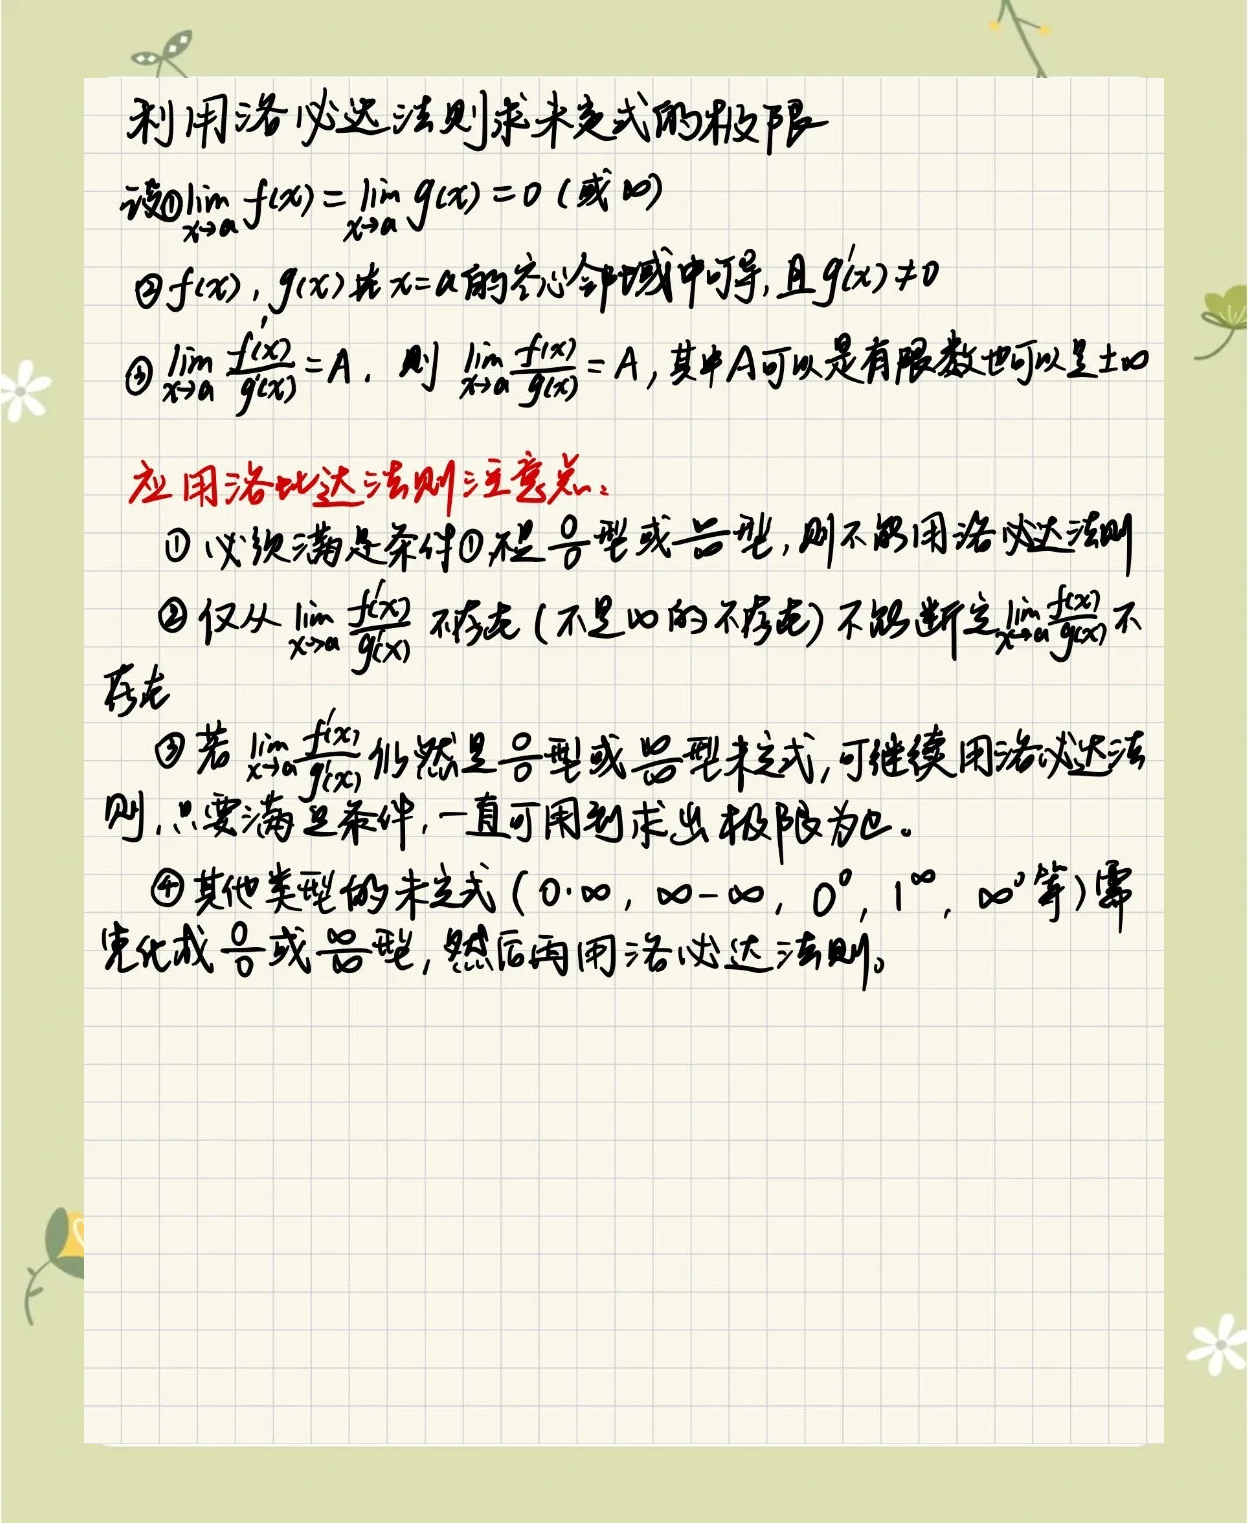 利用洛必达法则求未定式的极限
设①lim_{x→a} f(x) = lim_{x→a} g(x) = 0 (或∞)
②f(x), g(x)在x=a的空心邻域中可导,且g'(x)≠0
③ lim_{x→a} f'(x)/g'(x) = A. 则 lim_{x→a} f(x)/g(x) = A,其中A可以是有限数也可以是±∞
应用洛比达法则注意点:
① 必须满足条件①,不是 0/0 型或 ∞/∞ 型,则不能用洛必达法则
② 仅从 lim_{x→a} f'(x)/g'(x) 不存在(不是∞的不存在)不能断定 lim_{x→a} f(x)/g(x) 不
存在
③ 若 lim_{x→a} f'(x)/g'(x) 仍然是 0/0 型或 ∞/∞ 型未定式,可继续用洛必达法
则,只要满足条件,一直可用到求出极限为止。
④ 其他类型的未定式(0·∞, ∞-∞, 0^0, 1^∞, ∞^0 等)需
先化成 0/0 或 ∞/∞ 型,然后再用洛必达法则。